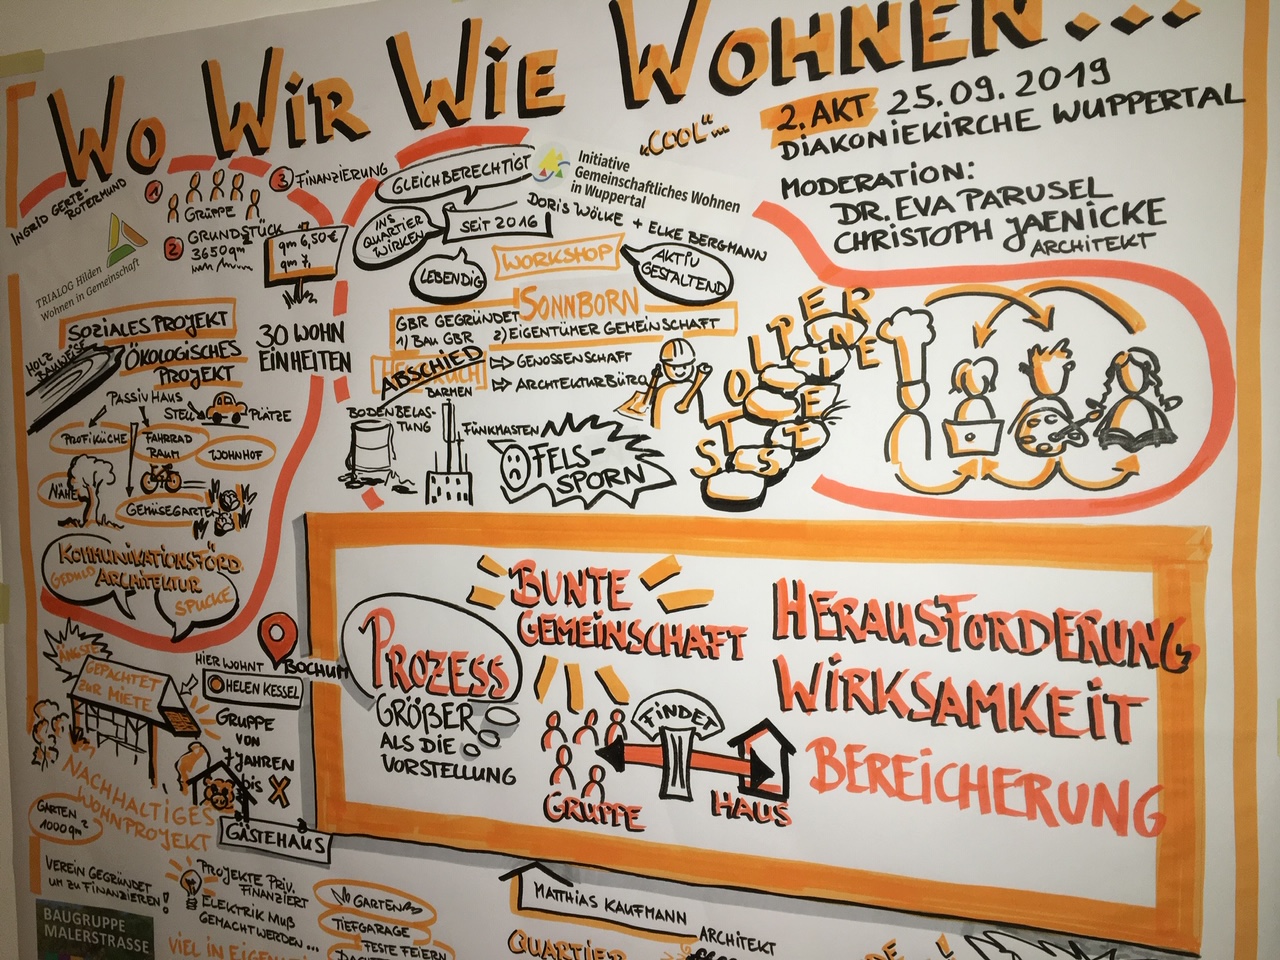 WO WIR WIE WOHNEN...
2. AKT 25.09.2019
DIAKONIEKIRCHE WUPPERTAL
MODERATION:
DR. EVA PARUSEL
CHRISTOPH JAENICKE
ARCHITEKT
INGRID GERTE
ROTERMUND
TRIALOG Hilden
Wohnen in Gemeinschaft
1
GRUPPE
2 GRUNDSTÜCK
3650qm
3 FINANZIERUNG
qm 6,50€
qm 7,
30 WOHN
EINHEITEN
SOZIALES PROJEKT
HOLZ
BAUWEISE
ÖKOLOGISCHES
PROJEKT
PASSIVHAUS
STELL PLÄTZE
PROFIKÜCHE
FAHRRAD
RAUM
WOHNHOF
NÄHE
GEMÜSEGARTEN
KOMMUNIKATIONSFÖRD.
GEDULD
ARCHITEKTUR
SPUCKE
GLEICHBERECHTIGT
INS
QUARTIER
WIRKEN
SEIT 2016
LEBENDIG
"COOL"...
Initiative
Gemeinschaftliches Wohnen
in Wuppertal
DORIS WÖLKE + ELKE BERGMANN
WORKSHOP
AKTIV
GESTALTEND
SONNBORN
GBR GEGRÜNDET
1) BAU GBR 2) EIGENTÜMER GEMEINSCHAFT
ABSCHIED
BARMEN
GENOSSENSCHAFT
ARCHITEKTURBÜRO
BODENBELAS-
TUNG
FUNKMASTEN
FELS-
SPORN
STOLPER
STEINE
PROZESS
GRÖßER
ALS DIE
VORSTELLUNG
BUNTE
GEMEINSCHAFT
FINDET
GRUPPE
HAUS
HERAUSFORDERUNG
WIRKSAMKEIT
BEREICHERUNG
ÄNGSTE
GEPACHTET
ZUR MIETE
HIER WOHNT
HELEN KESSEL
BOCHUM
GRUPPE
VON
7 JAHREN
bis X
NACHHALTIGES
WOHNPROJEKT
GARTEN
1000qm²
GÄSTEHAUS
VEREIN GEGRÜNDET
UM ZU FINANZIEREN!
BAUGRUPPE
MALERSTRASSE
PROJEKTE PRIV.
FINANZIERT
ELEKTRIK MUß
GEMACHT WERDEN...
VIEL IN
GARTEN
TIEFGARAGE
FESTE FEIERN
MATTHIAS KAUFMANN
ARCHITEKT
QUARTIER